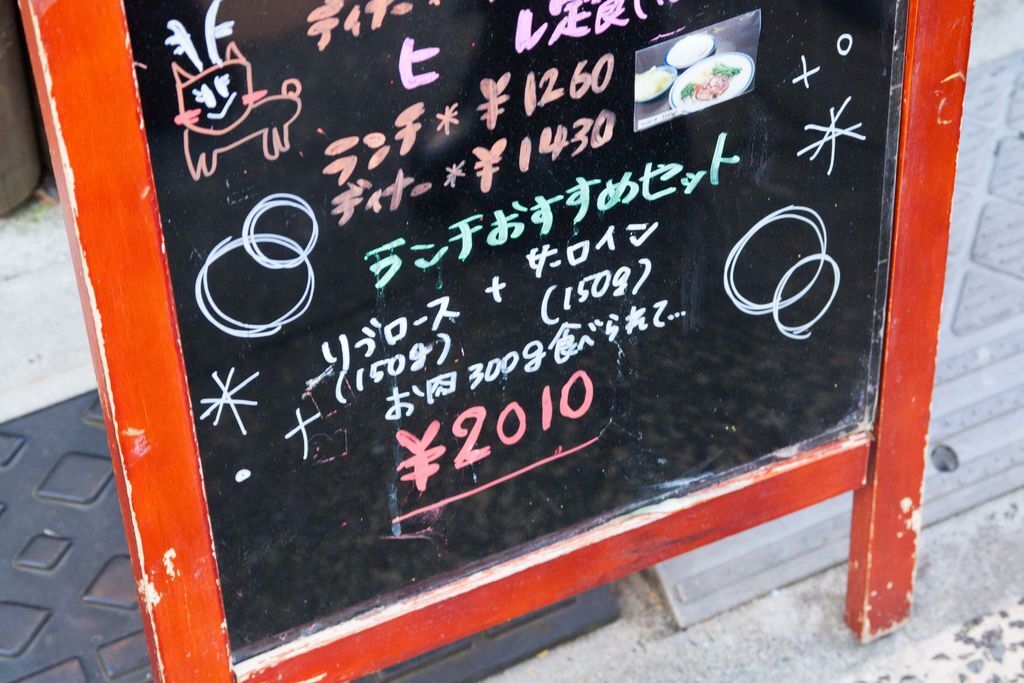 ディナー
ヒレ定食
ランチ * ¥1260
ディナー * ¥1430
ランチおすすめセット
リブロース + サーロイン
(150g) (150g)
お肉300g食べられて...
¥2010